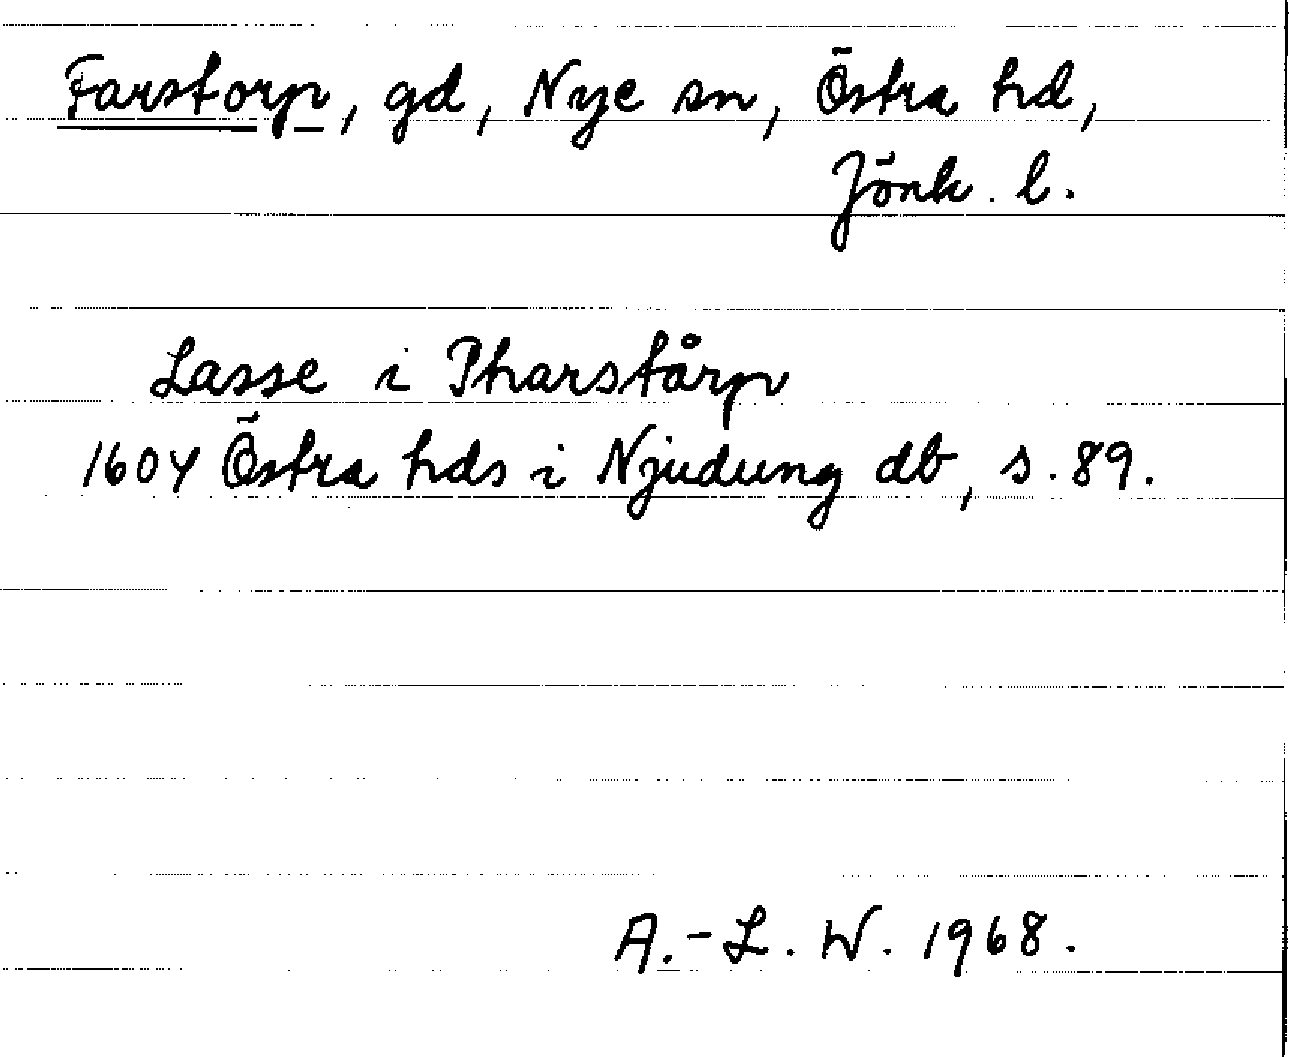 Farstorp, gd, Nye sn, Östra hd,
Jönk. l.
Lasse i Pharstårp
1604 Östra hds i Njudung db, s. 89.
A.-L. W. 1968.